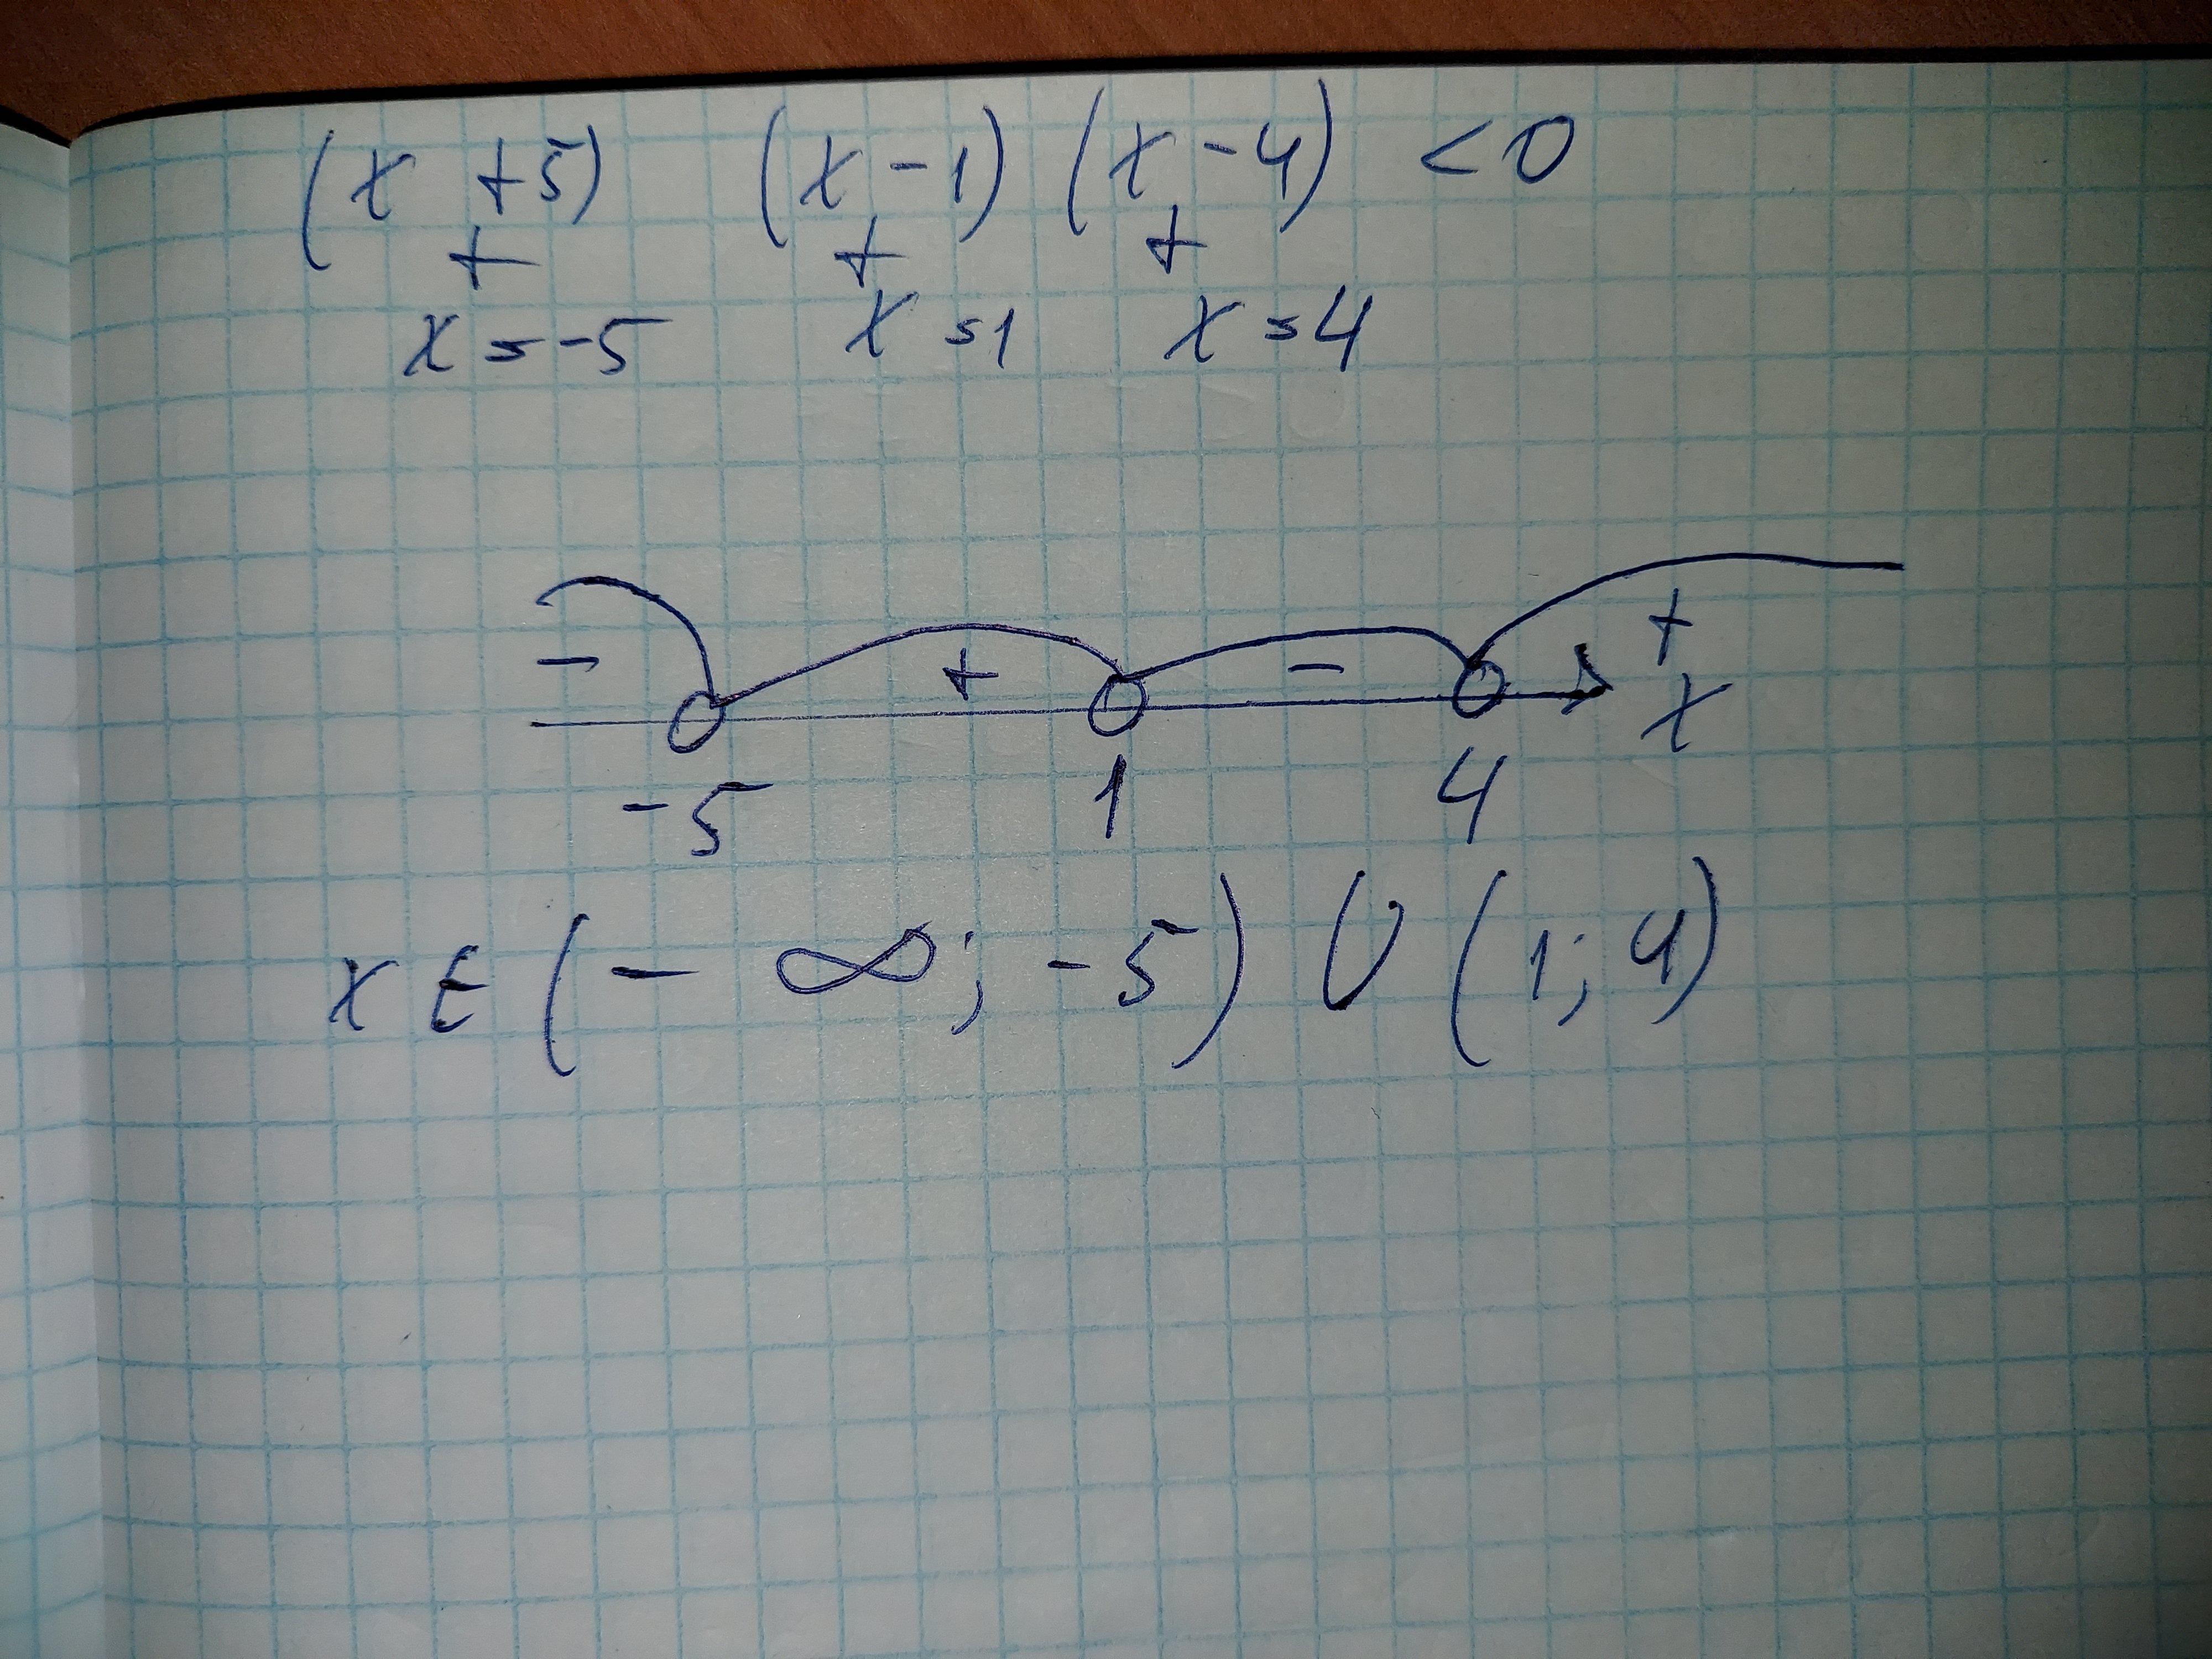 (x +5) (x -1) (x -4) < 0
+ + +
x = -5 x = 1 x = 4
- + - +
x
-5 1 4
x ∈ (- ∞; -5) ∪ (1; 4)